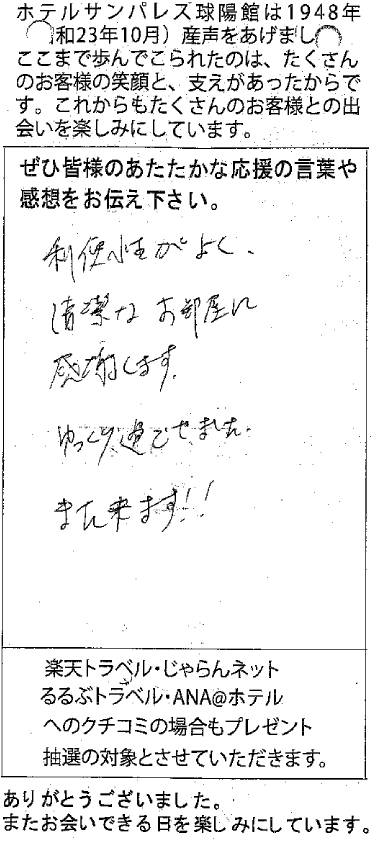 ホテルサンパレス球陽館は1948年
和23年10月）産声をあげまし
ここまで歩んでこられたのは、たくさん
のお客様の笑顔と、支えがあったからで
す。これからもたくさんのお客様との出
会いを楽しみにしています。
ぜひ皆様のあたたかな応援の言葉や
感想をお伝え下さい。
利便性がよく、
清潔なお部屋に
感謝します。
ゆっくり過ごせました。
また来ます!!
楽天トラベル・じゃらんネット
るるぶトラベル・ANA@ホテル
へのクチコミの場合もプレゼント
抽選の対象とさせていただきます。
ありがとうございました。
またお会いできる日を楽しみにしています。